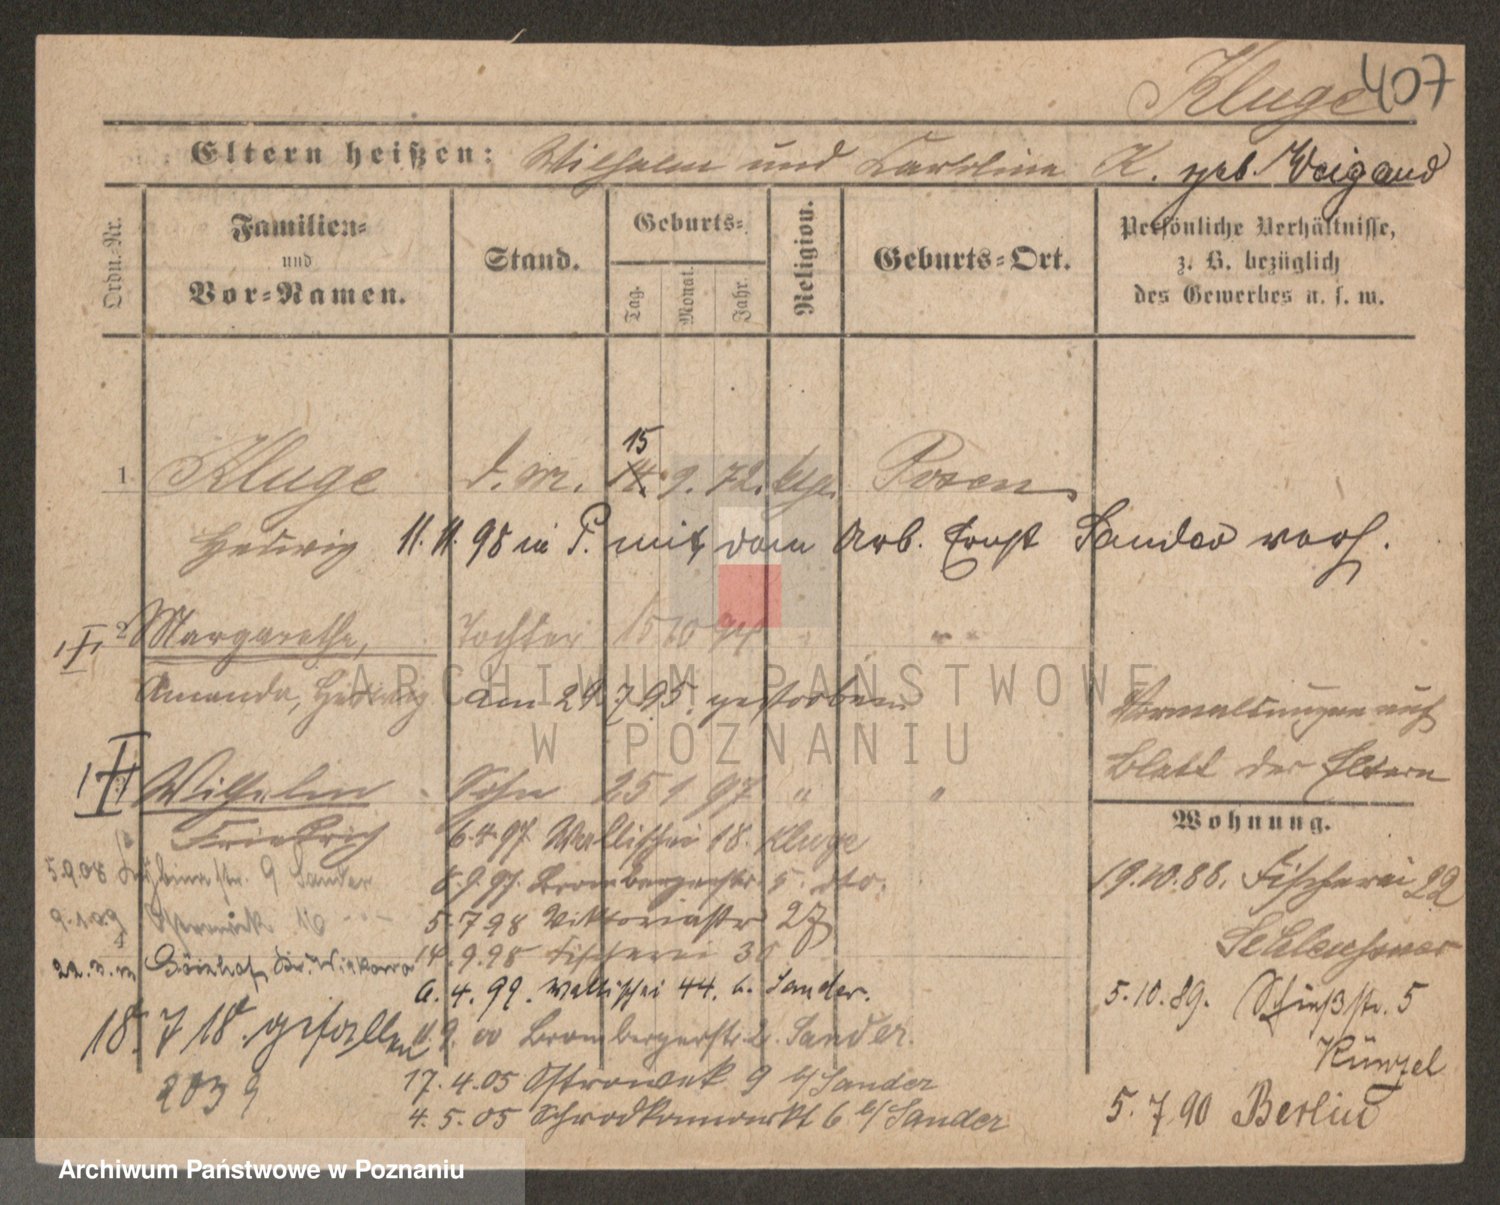 Kluge 407
Eltern heißen: Wilhelm und Karoline K. geb. Weigand
Ordn.-Nr.
Familien- und Vor-Namen.
Stand.
Geburts-
Tag. Monat. Jahr.
Religion.
Geburts-Ort.
Persönliche Verhältnisse,
z. B. bezüglich
des Gewerbes u. s. w.
15
1. Kluge d. M. 14. 9. 72. Posen
Hedwig 11. 11. 98 in P. mit dem Arb. Ernst Sander verh.
2 Margarethe, Tochter 15 10 94 " "
Amanda, Hedwig am 29.7.95. gestorben
Wilhelm Sohn 25 1 97 " "
Friedrich
6.4.97 Wallischei 18. Kluge
8.9.97. Brombergerstr. 5. dto.
5.7.98 Viktoriastr 27
14.9.98 Fischerei 30
4.99. Wallischei 44. b. Sander.
9. 00 Brombergerstr. 2. Sander.
17.4.05 Ostrowek 9 b/Sander
4.5.05 Schrodkamarkt 6 b/Sander
5.9.08 9 Sander
Ostrowek 10
18. 7 18. gefallen
2039
auf
Blatt der Eltern
Wohnung.
19.10.88. Fischerei 22
5.10.89. Schießstr. 5
Künzel
5.7.90 Berlin
ARCHIWUM PAŃSTWOWE
W POZNANIU
Archiwum Państwowe w Poznaniu